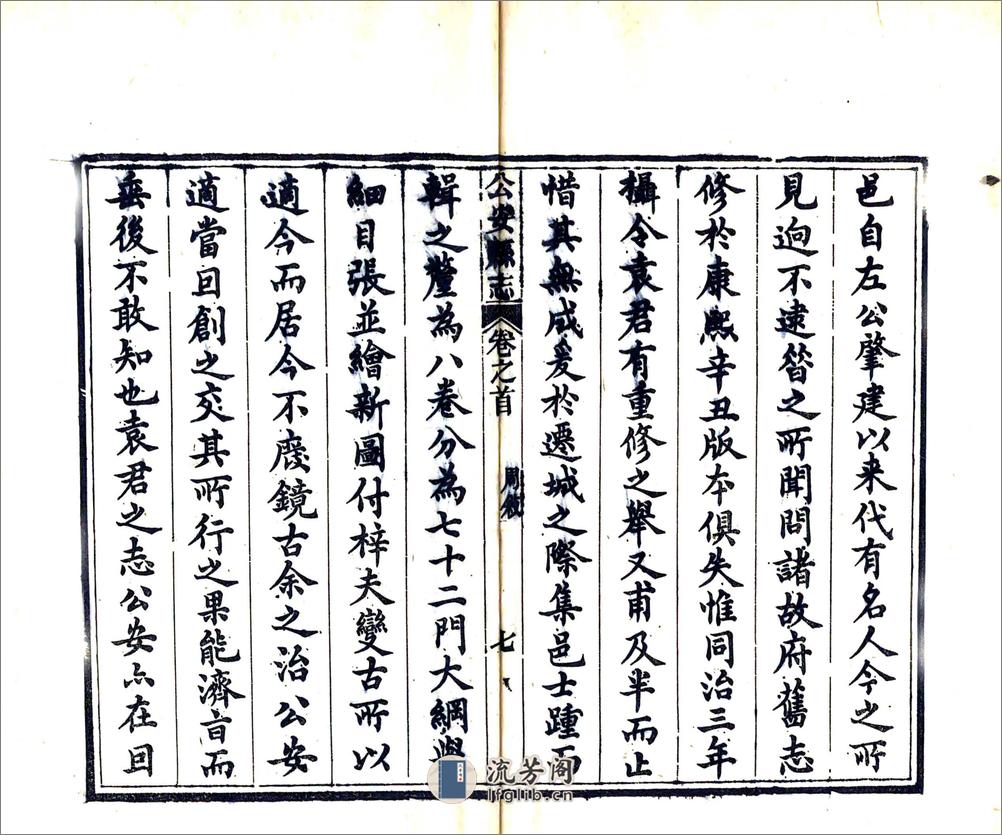 邑自左公肇建以来代有名人今之所
見逈不逮昝之所聞問諸故府舊志
修於康熙辛丑版本俱失惟同治三年
攝令袁君有重修之舉又甫及半而止
惜其無成爰於遷城之際集邑士踵而
公安縣志 卷之首 周敘 七
輯之釐為八卷分為七十二門大綱與
細目張並繪新圖付梓夫變古所以
適今而居今不廢鏡古余之治公安
適當囙創之交其所行之果能濟旹而
垂後不敢知也袁君之志公安亦在囙
流芳阁
lfglib.cn